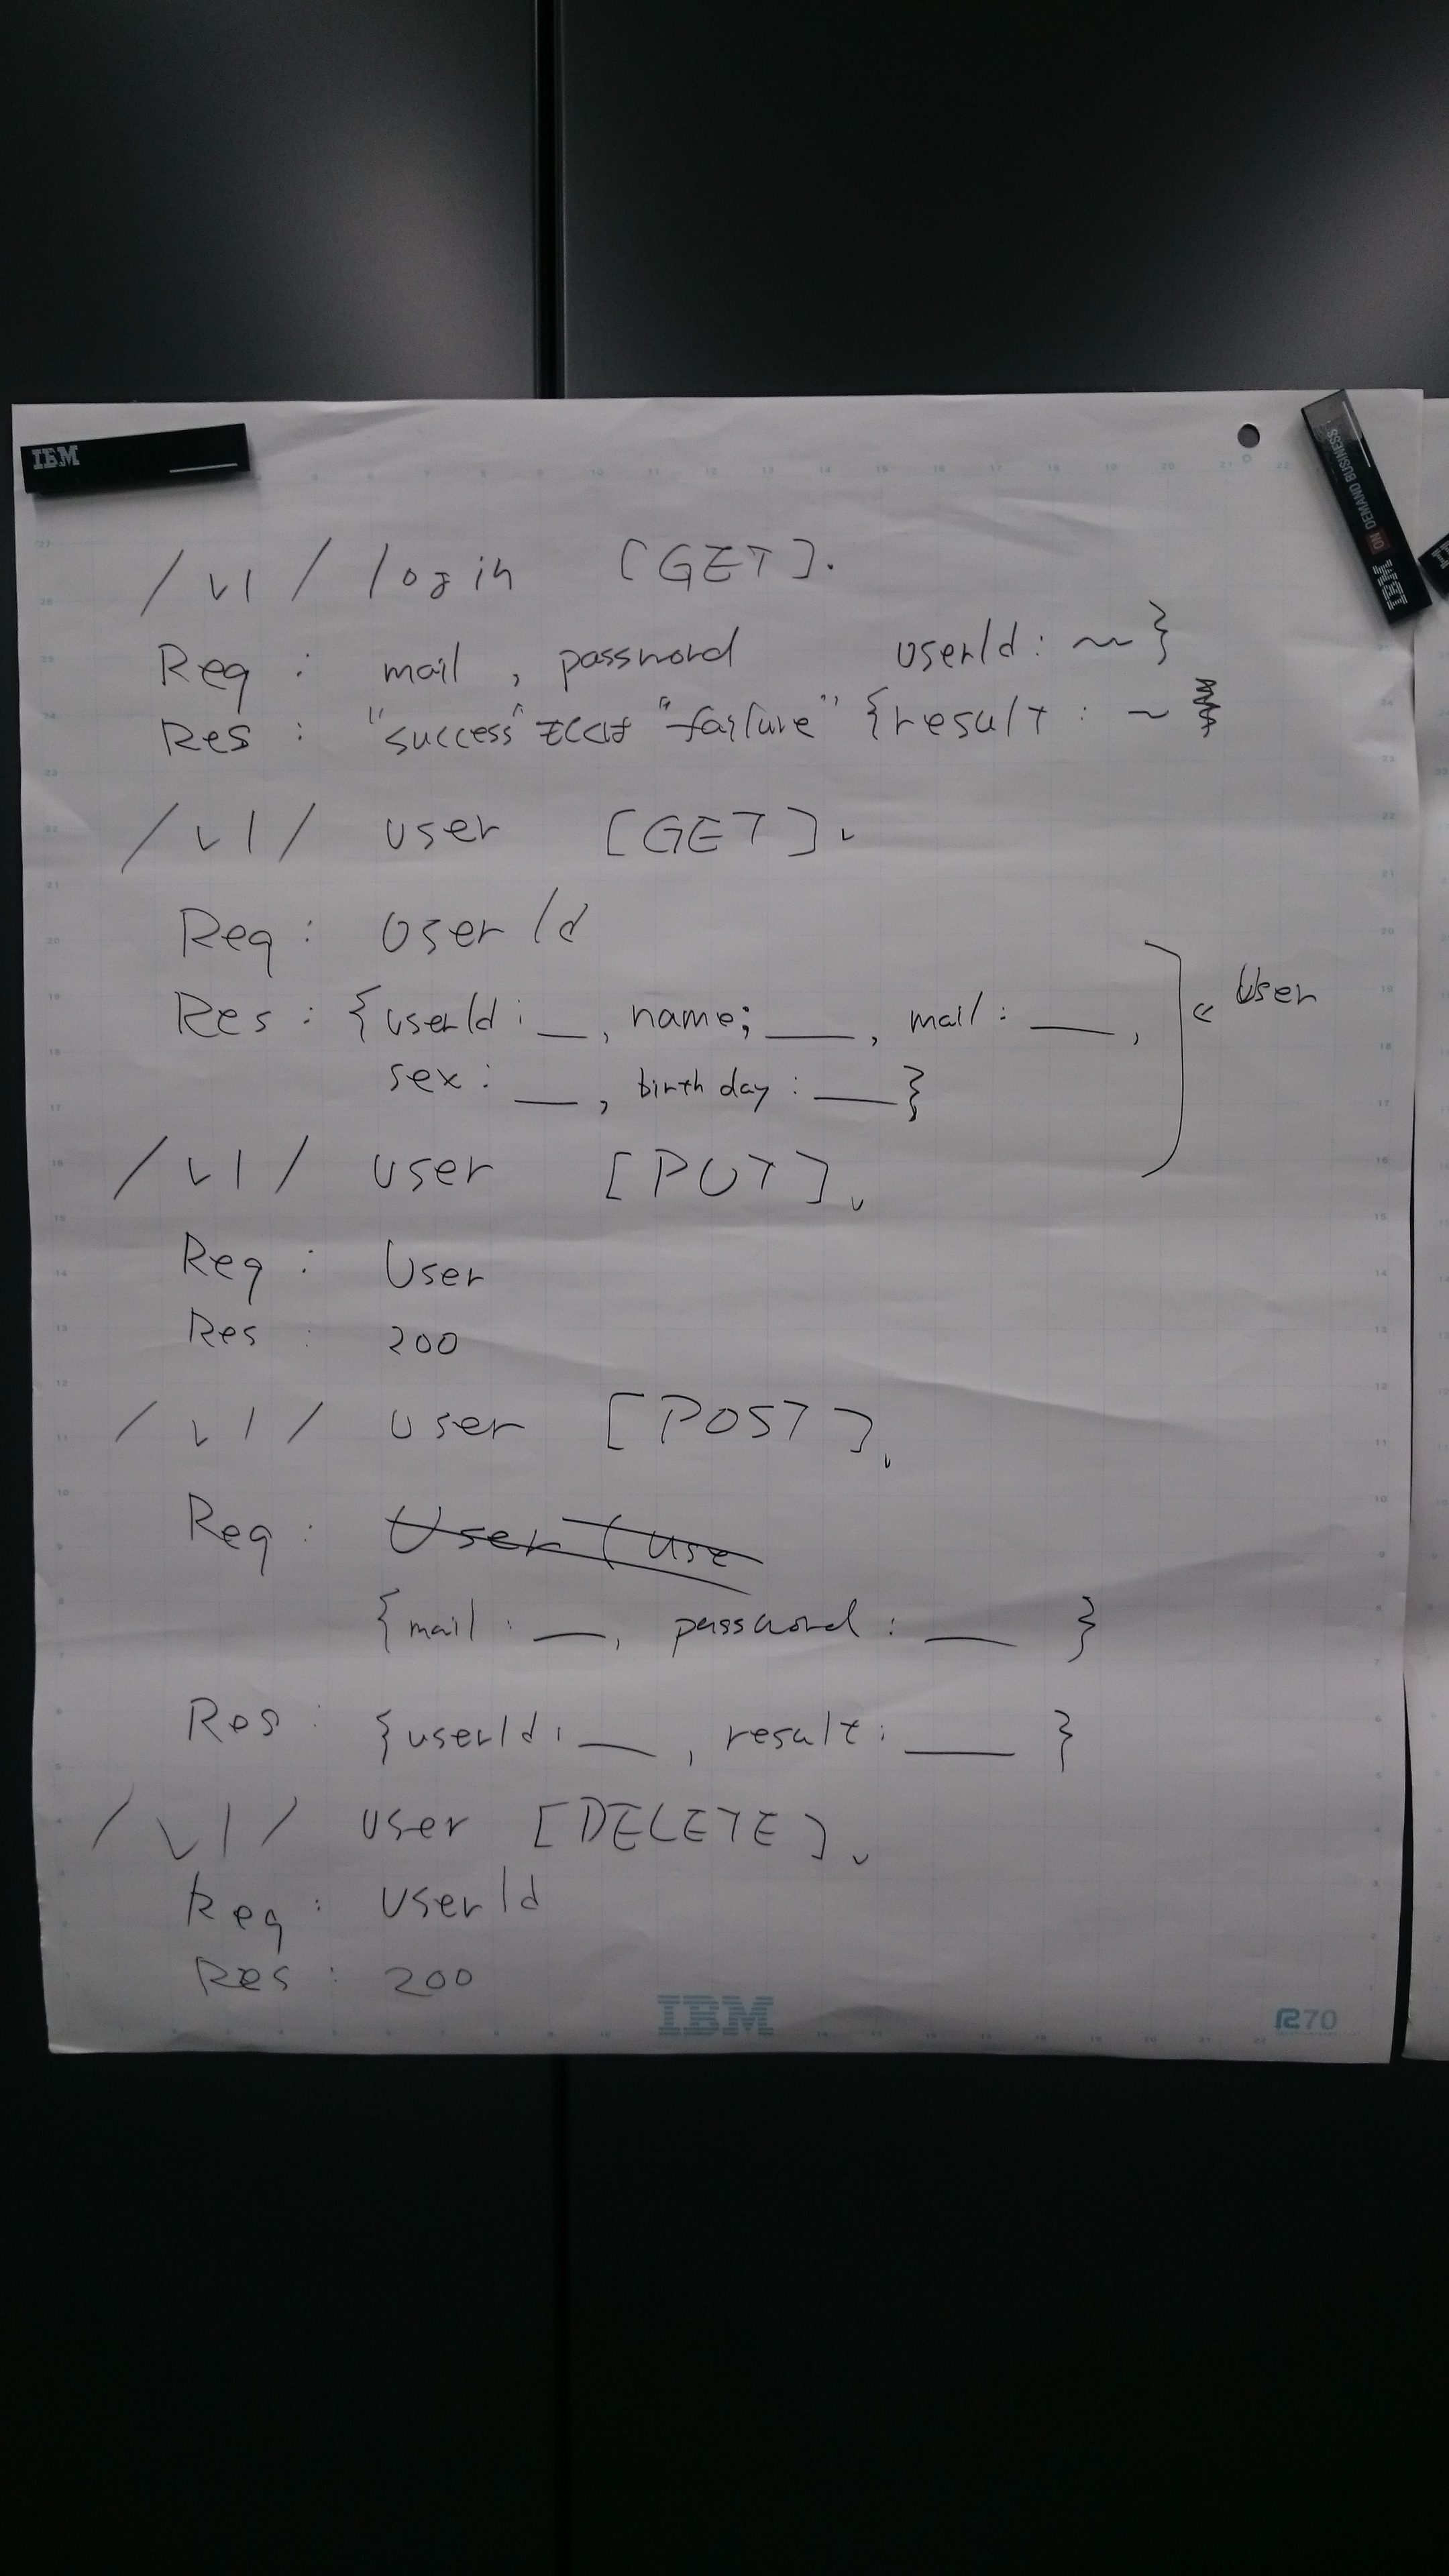 IBM
ON DEMAND BUSINESS
IBM
/v1/login [GET].
Req : mail, password userId: ~ }
Res : "success" もしくは "failure" {result : ~
/v1/ user [GET].
Req : UserId
Res : {userId : __, name; ___, mail : ___,
sex : __, birthday : ___}
« User
/v1/ user [PUT].
Req : User
Res : 200
/v1/ user [POST].
Req : User (use
{mail : __, password : ___ }
Res : {userId : __, result : ___ }
/v1/ user [DELETE].
Req : UserId
Res : 200
IBM
R70